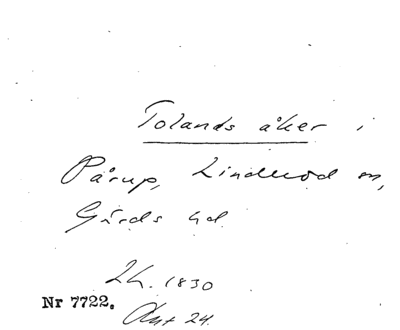 Tolands åker i
Pårup, Linderöd sn,
Gärds hd
Lh. 1830
Nr 7722.
Akt 24.